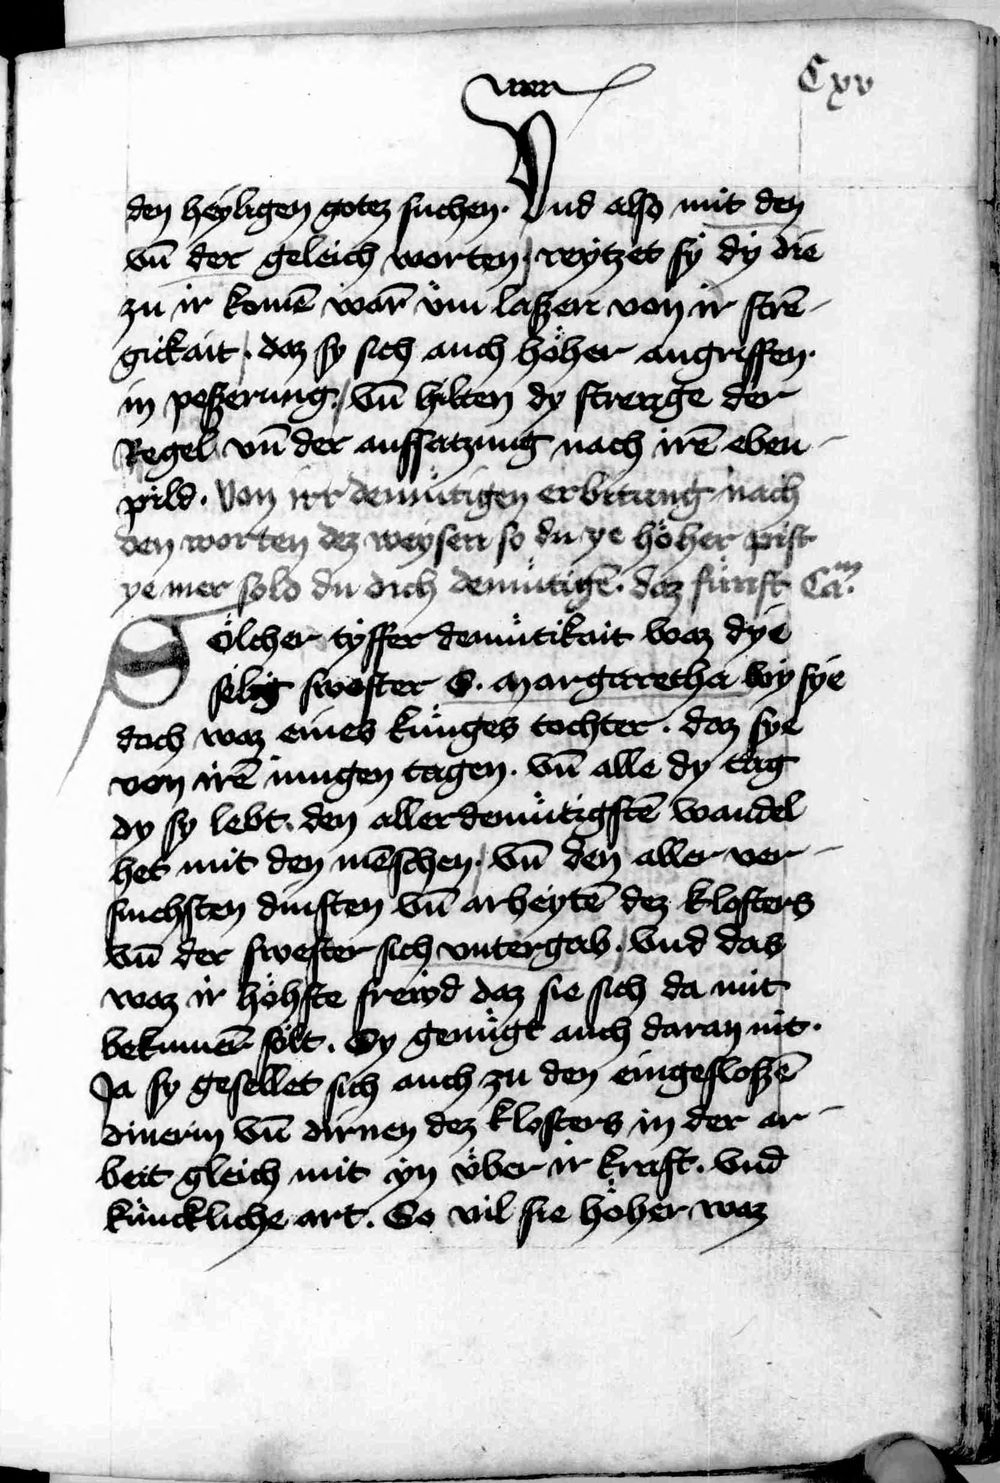 Cxv
den heyligen gotez suchen. Vnd also mit den
vn̄ der geleich worten, reytzet sÿ dÿ die
zu ir komē warn̄ vm laszen von ir strē-
gickait. daz sy sich auch höher angriffen.
in peszerung. vn̄ hilten dy strenge der
Regel vn̄ der auffsatzung nach irē eben-
pild. Von irr demütigen erbitung nach
den worten dez weysen so du ye höher pist
ye mer solo du dich demütigē. daz fünft Cam̄.
Sölcher tyffer demütikait waz dye
selig swester S. Margaretha wy sye
doch waz eines künges tochter. daz sye
von irē iungen tagen. vn̄ alle dy tag
dy sy lebt. den aller demütigstē wandel
het mit den mēschen, vn̄ den aller ver-
smehsten dinsten vn̄ arbeytē dez klosters
vn̄ der swester sich vntergab. vnd das
waz ir höhste frewd daz sie sich da mit
bekumerñ sölt. Sy genügt auch daran nit.
Ja sy gesellet sich auch zu den eingeslossē
dinerin vn̄ dirnen dez klosters in der ar-
beit gleich mit yn über ir kraft. vnd
künckliche art. So vil sie höher waz